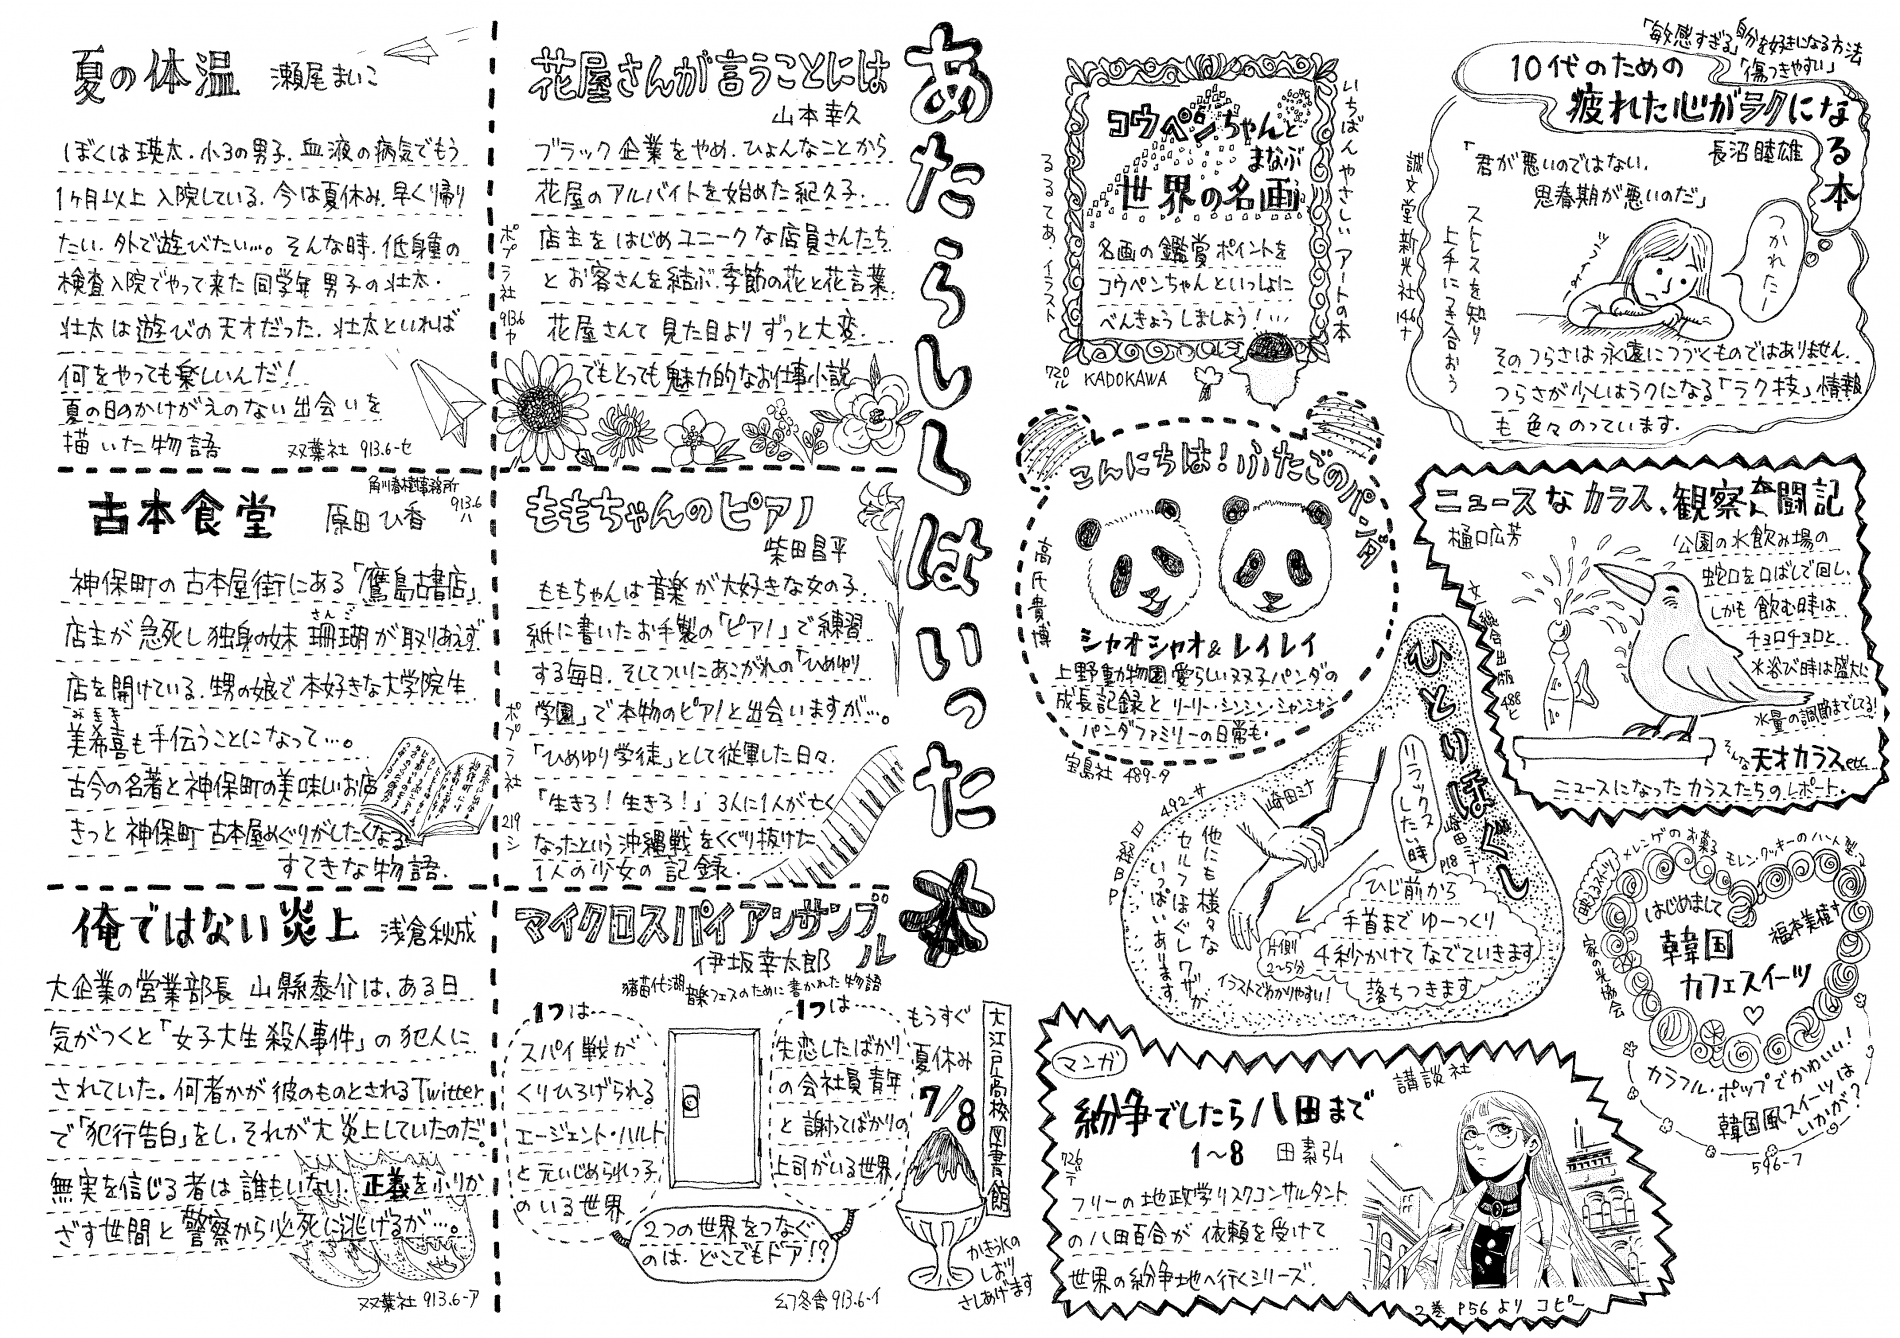 あたらしくはいった本
大江戸高校図書館
もうすぐ
夏休み
7/8
かき氷の
しおり
さしあげます
花屋さんが言うことには
山本幸久
ブラック企業をやめ、ひょんなことから
花屋のアルバイトを始めた紀久子。
店主をはじめユニークな店員さんたち
とお客さんを結ぶ季節の花と花言葉
花屋さんて見た目よりずっと大変。
でもとっても魅力的なお仕事小説
ポプラ社 913.6 ヤ
夏の体温 瀬尾まいこ
ぼくは瑛太。小3の男子。血液の病気でもう
1ヶ月以上入院している。今は夏休み。早く帰り
たい。外で遊びたい…。そんな時、低身長の
検査入院でやって来た同学年男子の壮太。
壮太は遊びの天才だった。壮太といれば
何をやっても楽しいんだ!
夏の日のかけがえのない出会いを
描いた物語 双葉社 913.6-セ
ももちゃんのピアノ
柴田昌平
ももちゃんは音楽が大好きな女の子。
紙に書いたお手製の「ピアノ」で練習
する毎日。そしてついにあこがれの「ひめゆり
学園」で本物のピアノと出会いますが…。
「ひめゆり学徒」として従軍した日々。
「生きろ!生きろ!」3人に1人が亡く
なったという沖縄戦をくぐり抜けた
1人の少女の記録。
ポプラ社 219 シ
古本食堂 原田ひ香
角川春樹事務所
913.6
ハ
神保町の古本屋街にある「鷹島古書店」
店主が急死し独身の妹珊瑚が取りあえず
さんご
店を開けている。甥の娘で本好きな大学院生
みきき
美希喜も手伝うことになって…。
古今の名著と神保町の美味しいお店
きっと神保町古本屋めぐりがしたくなる
すてきな物語。
マイクロスパイアンサンブル
伊坂幸太郎
猪苗代湖
音楽フェスのために書かれた物語
1つは…
スパイ戦が
くりひろげられる
エージェント・ハルト
と元いじめられっ子
のいる世界
1つは
失恋したばかり
の会社員青年
と謝ってばかりの
上司がいる世界
2つの世界をつなぐ
のは、どこでもドア!?
幻冬舎 913.6-イ
俺ではない炎上 浅倉秋成
大企業の営業部長 山縣泰介は、ある日
気がつくと「女子大生殺人事件」の犯人に
されていた。何者かが彼のものとされるTwitter
で「犯行告白」をし、それが大炎上していたのだ。
無実を信じる者は誰もいない。正義をふりか
ざす世間と警察から必死に逃げるが…。
双葉社 913.6-ア
「敏感すぎる」自分を好きになる方法
「傷つきやすい」
10代のための
疲れた心がラクになる本
長沼睦雄
「君が悪いのではない。
思春期が悪いのだ」
ストレスを知り
上手につき合おう
誠文堂新光社 146 ナ
つかれたー
そのつらさは永遠につづくものではありません。
つらさが少しはラクになる「ラク技」情報
も色々のっています。
いちばんやさしいアートの本
コウペンちゃんと
まなぶ
世界の名画
るるてあ、イラスト
名画の鑑賞ポイントを
コウペンちゃんといっしょに
べんきょうしましょう!…
720
ル
KADOKAWA
こんにちは!ふたごのパンダ
高氏貴博
シャオシャオ&レイレイ
上野動物園愛らしい双子パンダの
成長記録とリーリー・シンシン・シャンシャン
パンダファミリーの日常も。
宝島社 489-タ
ニュースなカラス、観察奮闘記
樋口広芳
公園の水飲み場の
蛇口を口ばしで回し、
しかも飲む時は
チョロチョロと、
水浴び時は盛大に
水量の調節までしてる!
そんな天才カラスetc
ニュースになったカラスたちのレポート。
文一総合出版 488 ヒ
ひとりほぐし
崎田ミナ
崎田ミナ P18
リラックス
したい時
ひじ前から
手首までゆーっくり
4秒かけてなでていきます
片側
2~5分
落ちつきます
他にも様々な
セルフほぐしワザが
いっぱいあります
イラストでわかりやすい!
492-サ
日経BP
メレンゲのお菓子
モレン・クッキーのハート型
映えスイーツ
はじめまして
韓国
カフェスイーツ
福本美樹
家の光協会
カラフル・ポップでかわいい!
韓国風スイーツは
いかが?
596-フ
マンガ
紛争でしたら八田まで
1~8 田素弘
講談社
726
デ
フリーの地政学リスクコンサルタント
の八田百合が依頼を受けて
世界の紛争地へ行くシリーズ。
2巻 P56 より コピー